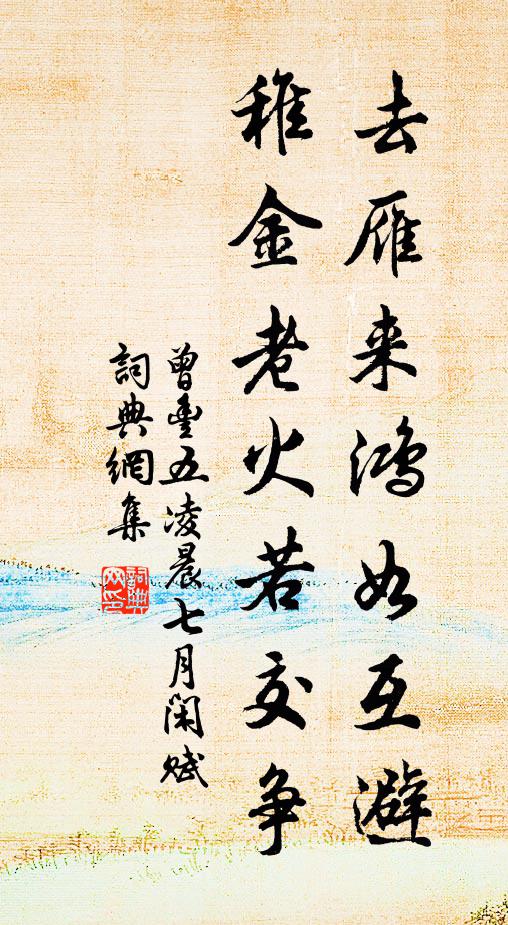 去雁来鸿如互避
稚金老火若交争
曾豊五凌晨七月闲赋
詞典網集
詞典網印